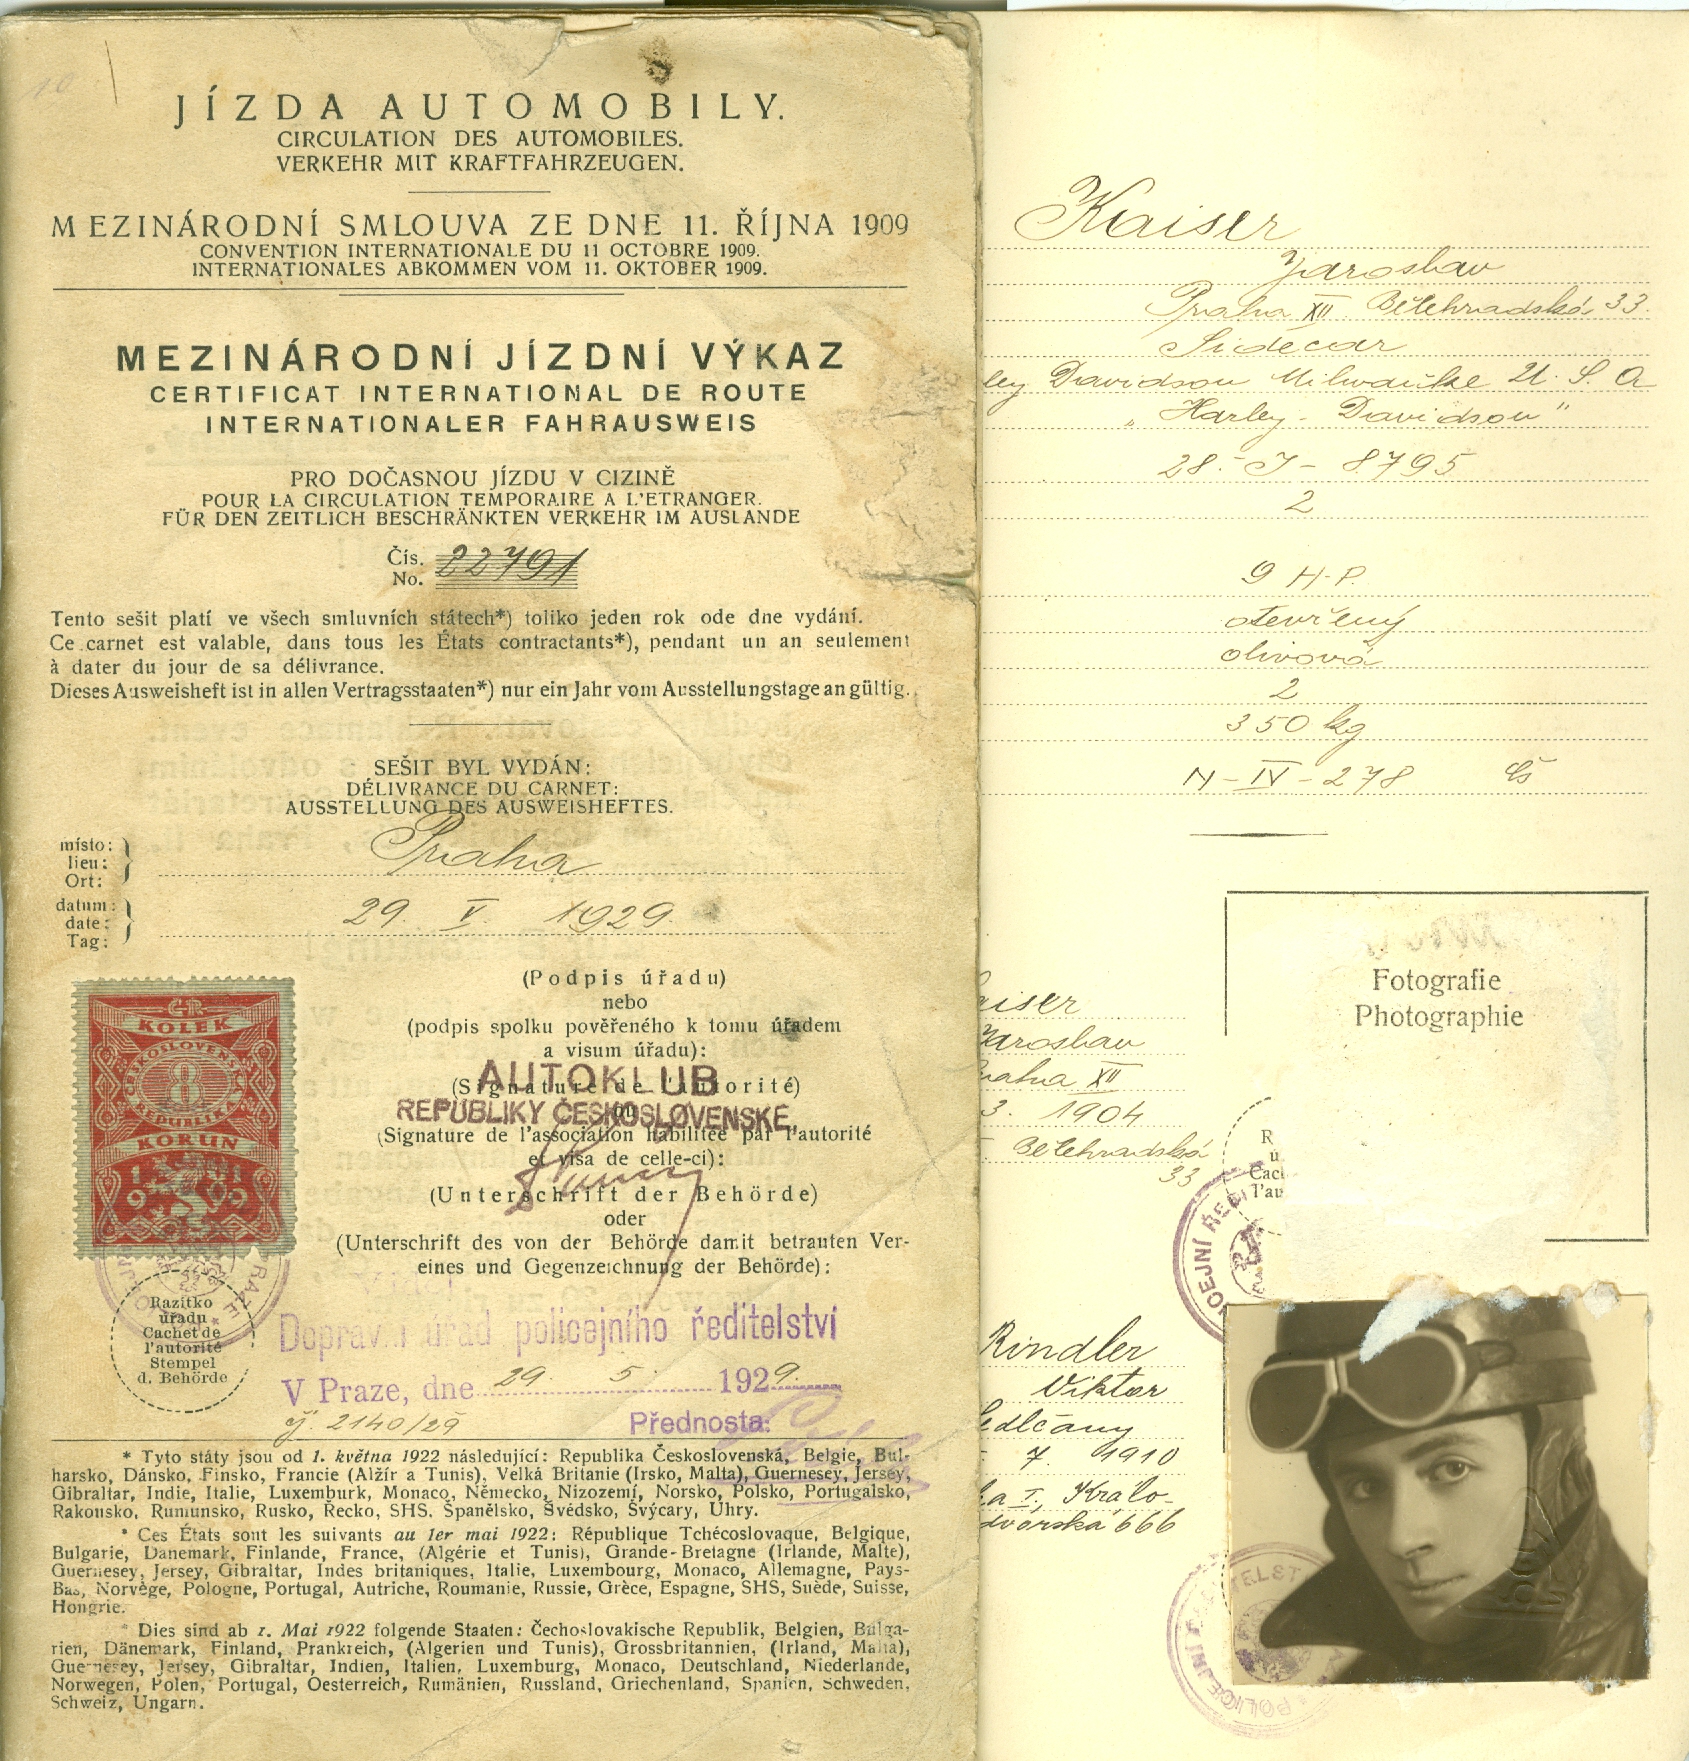 JÍZDA AUTOMOBILY.
CIRCULATION DES AUTOMOBILES.
VERKEHR MIT KRAFTFAHRZEUGEN.
MEZINÁRODNÍ SMLOUVA ZE DNE 11. ŘÍJNA 1909
CONVENTION INTERNATIONALE DU 11 OCTOBRE 1909.
INTERNATIONALES ABKOMMEN VOM 11. OKTOBER 1909.
MEZINÁRODNÍ JÍZDNÍ VÝKAZ
CERTIFICAT INTERNATIONAL DE ROUTE
INTERNATIONALER FAHRAUSWEIS
PRO DOČASNOU JÍZDU V CIZINĚ
POUR LA CIRCULATION TEMPORAIRE A L'ETRANGER.
FÜR DEN ZEITLICH BESCHRÄNKTEN VERKEHR IM AUSLANDE
Čís.
No. 22791
Tento sešit platí ve všech smluvních státech*) toliko jeden rok ode dne vydání.
Ce carnet est valable, dans tous les États contractants*), pendant un an seulement
à dater du jour de sa délivrance.
Dieses Ausweisheft ist in allen Vertragsstaaten*) nur ein Jahr vom Ausstellungstage an gültig.
SEŠIT BYL VYDÁN:
DÉLIVRANCE DU CARNET:
AUSSTELLUNG DES AUSWEISHEFTES.
místo:
lieu:
Ort:
Praha
datum:
date:
Tag:
29. V. 1929.
ČR
KOLEK
ČESKOSLOVENSKÁ
8
REPUBLIKA
KORUN
1919
(Podpis úřadu)
nebo
(podpis spolku pověřeného k tomu úřadem
a visum úřadu):
(Signature de l'autorité)
ou
(Signature de l'association habilitée par l'autorité
et visa de celle-ci):
(Unterschrift der Behörde)
oder
(Unterschrift des von der Behörde damit betrauten Ver-
eines und Gegenzeichnung der Behörde):
AUTOKLUB
REPUBLIKY ČESKOSLOVENSKÉ
Razítko
úřadu
Cachet de
l'autorité
Stempel
d. Behörde
Dopravní úřad policejního ředitelství
V Praze, dne 29. 5. 1929.
čj. 2140/29
Přednosta:
* Tyto státy jsou od 1. května 1922 následující: Republika Československá, Belgie, Bul-
harsko, Dánsko, Finsko, Francie (Alžír a Tunis), Velká Britanie (Irsko, Malta), Guernesey, Jersey,
Gibraltar, Indie, Italie, Luxemburk, Monaco, Německo, Nizozemí, Norsko, Polsko, Portugalsko,
Rakousko, Rumunsko, Rusko, Řecko, SHS. Španělsko, Švédsko, Švýcary, Uhry.
* Ces États sont les suivants au 1er mai 1922: République Tchécoslovaque, Belgique,
Bulgarie, Danemark, Finlande, France, (Algérie et Tunis), Grande-Bretagne (Irlande, Malte),
Guernesey, Jersey, Gibraltar, Indes britaniques, Italie, Luxembourg, Monaco, Allemagne, Pays-
Bas, Norvège, Pologne, Portugal, Autriche, Roumanie, Russie, Grèce, Espagne, SHS, Suède, Suisse,
Hongrie.
* Dies sind ab 1. Mai 1922 folgende Staaten: Čechoslovakische Republik, Belgien, Bulga-
rien, Dänemark, Finland, Prankreich, (Algerien und Tunis), Grossbritannien, (Irland, Malta),
Guernesey, Jersey, Gibraltar, Indien, Italien, Luxemburg, Monaco, Deutschland, Niederlande,
Norwegen, Polen, Portugal, Oesterreich, Rumänien, Russland, Griechenland, Spanien, Schweden,
Schweiz, Ungarn.
Kaiser
Jaroslav
Praha XII. Bělehradská 33.
Sidecar
ley Davidson Milwaukee U.S.A
„Harley-Davidson"
28.-J-8795
2
9 H-P.
otevřený
olivová
2
350 kg
N-IV-278 Čs
Fotografie
Photographie
aiser
Jaroslav
raha XII
3. 1904
Bělehradská
33
Cach
l'au
Rindler
Viktor
edlčany
7 1910
ha I., Králo-
dvorská 666
POLICEJNÍ ŘEDITELST